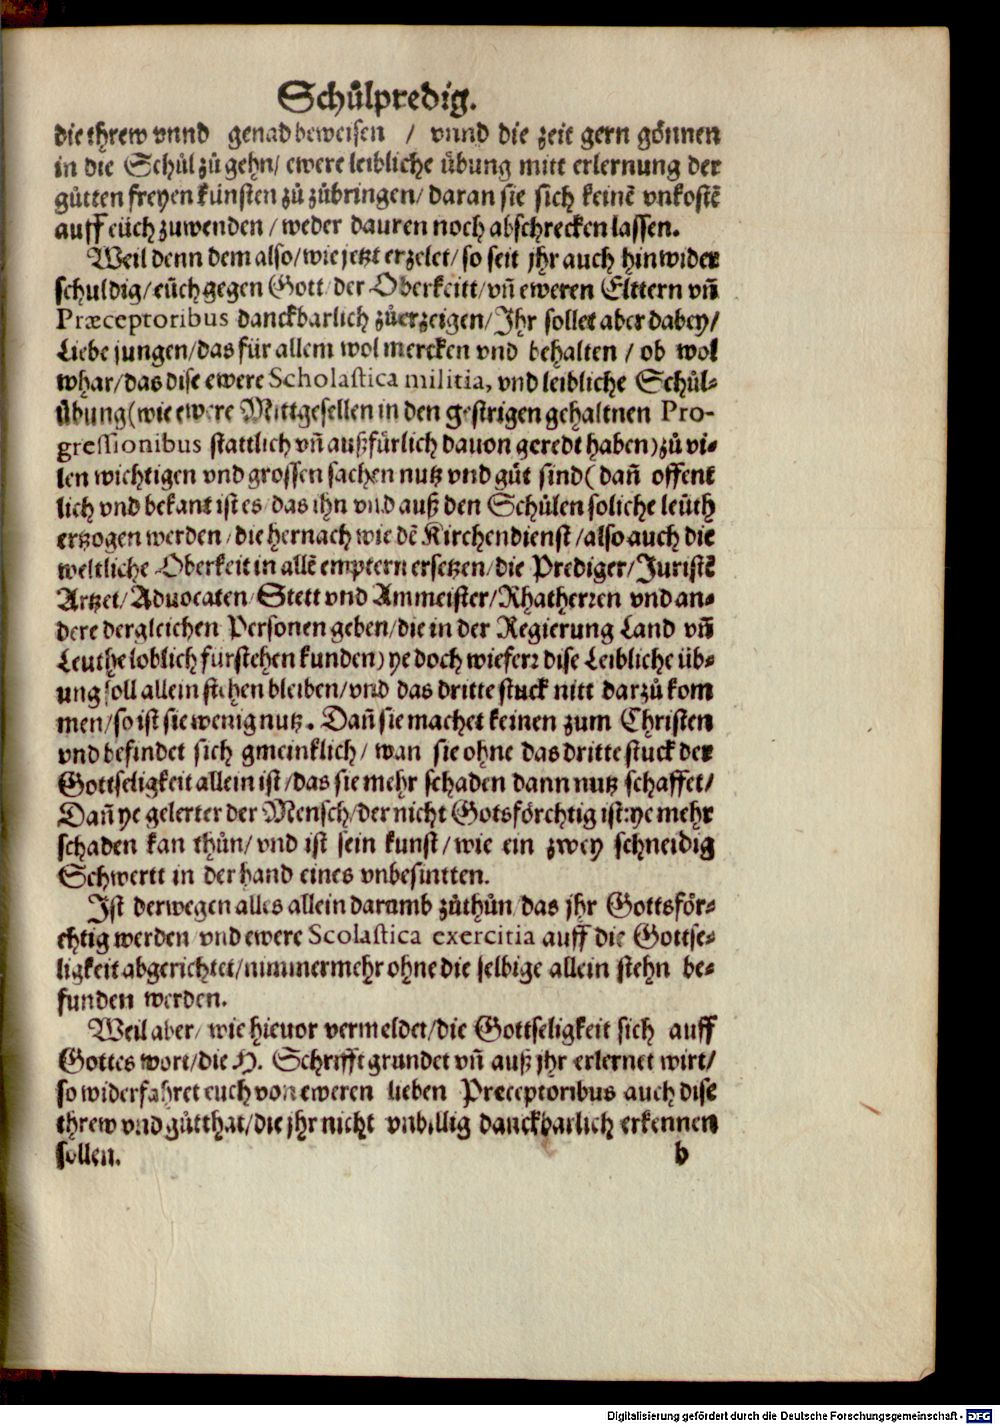 Schůlpredig.
die threw vnnd genad beweisen / vnnd die zeit gern gönnen
in die Schůl zů gehn/ ewere leibliche übung mitt erlernung der
gůtten freyen künsten zů zůbringen/ daran sie sich keinẽ vnkostẽ
auff eüch zuwenden / weder dauren noch abschrecken lassen.
Weil denn dem also/ wie jetzt erzelet/ so seit jhr auch hinwider
schuldig/ eüch gegen Gott/ der Oberkeitt/ vñ eweren Elttern vñ
Præceptoribus danckbarlich zůerzeigen/ Ihr sollet aber dabey/
Liebe jungen/ das für allem wol mercken vnd behalten / ob wol
whar/ das dise ewere Scholastica militia, vnd leibliche Schůl-
übung (wie ewere Mittgesellen in den gestrigen gehaltnen Pro-
gressionibus stattlich vñ außfürlich dauon geredt haben) zů vi-
len wichtigen vnd grossen sachen nutz vnd gůt sind (dañ offent
lich vnd bekant ist es/ das ihn vnd auß den Schůlen soliche leüth
ertzogen werden/ die hernach wie dẽ Kirchendienst/ also auch die
weltliche Oberkeit in allẽ emptern ersetzen/ die Prediger/ Juristẽ
Artzet/ Aduocaten/ Stett vnd Ammeister/ Rhatherren vnd an-
dere dergleichen Personen geben/ die in der Regierung Land vñ
Leuthe loblich fürstehen kunden) ye doch wieferr dise Leibliche üb-
ung soll allein stehen bleiben/ vnd das dritte stuck nitt darzů kom
men/ so ist sie wenig nutz. Dañ sie machet keinen zum Christen
vnd befindet sich gmeinklich/ wan sie ohne das dritte stuck der
Gottseligkeit allein ist/ das sie mehr schaden dann nutz schaffet/
Dañ ye gelerter der Mensch/ der nicht Gotsförchtig ist: ye mehr
schaden kan thůn/ vnd ist sein kunst/ wie ein zwey schneidig
Schwertt in der hand eines vnbesintten.
Ist derwegen alles allein darumb zůthůn/ das jhr Gottsför-
chtig werden/ vnd ewere Scolastica exercitia auff die Gottse-
ligkeit abgerichtet/ nimmermehr ohne die selbige allein stehn be-
funden werden.
Weil aber/ wie hieuor vermeldet/ die Gottseligkeit sich auff
Gottes wort/ die H. Schrifft grundet vñ auß jhr erlernet wirt/
so widerfahret euch von eweren lieben Preceptoribus auch dise
threw vnd gůtthat/ die jhr nicht vnbillig danckbarlich erkennen
sollen. b
Digitalisierung gefördert durch die Deutsche Forschungsgemeinschaft - DFG